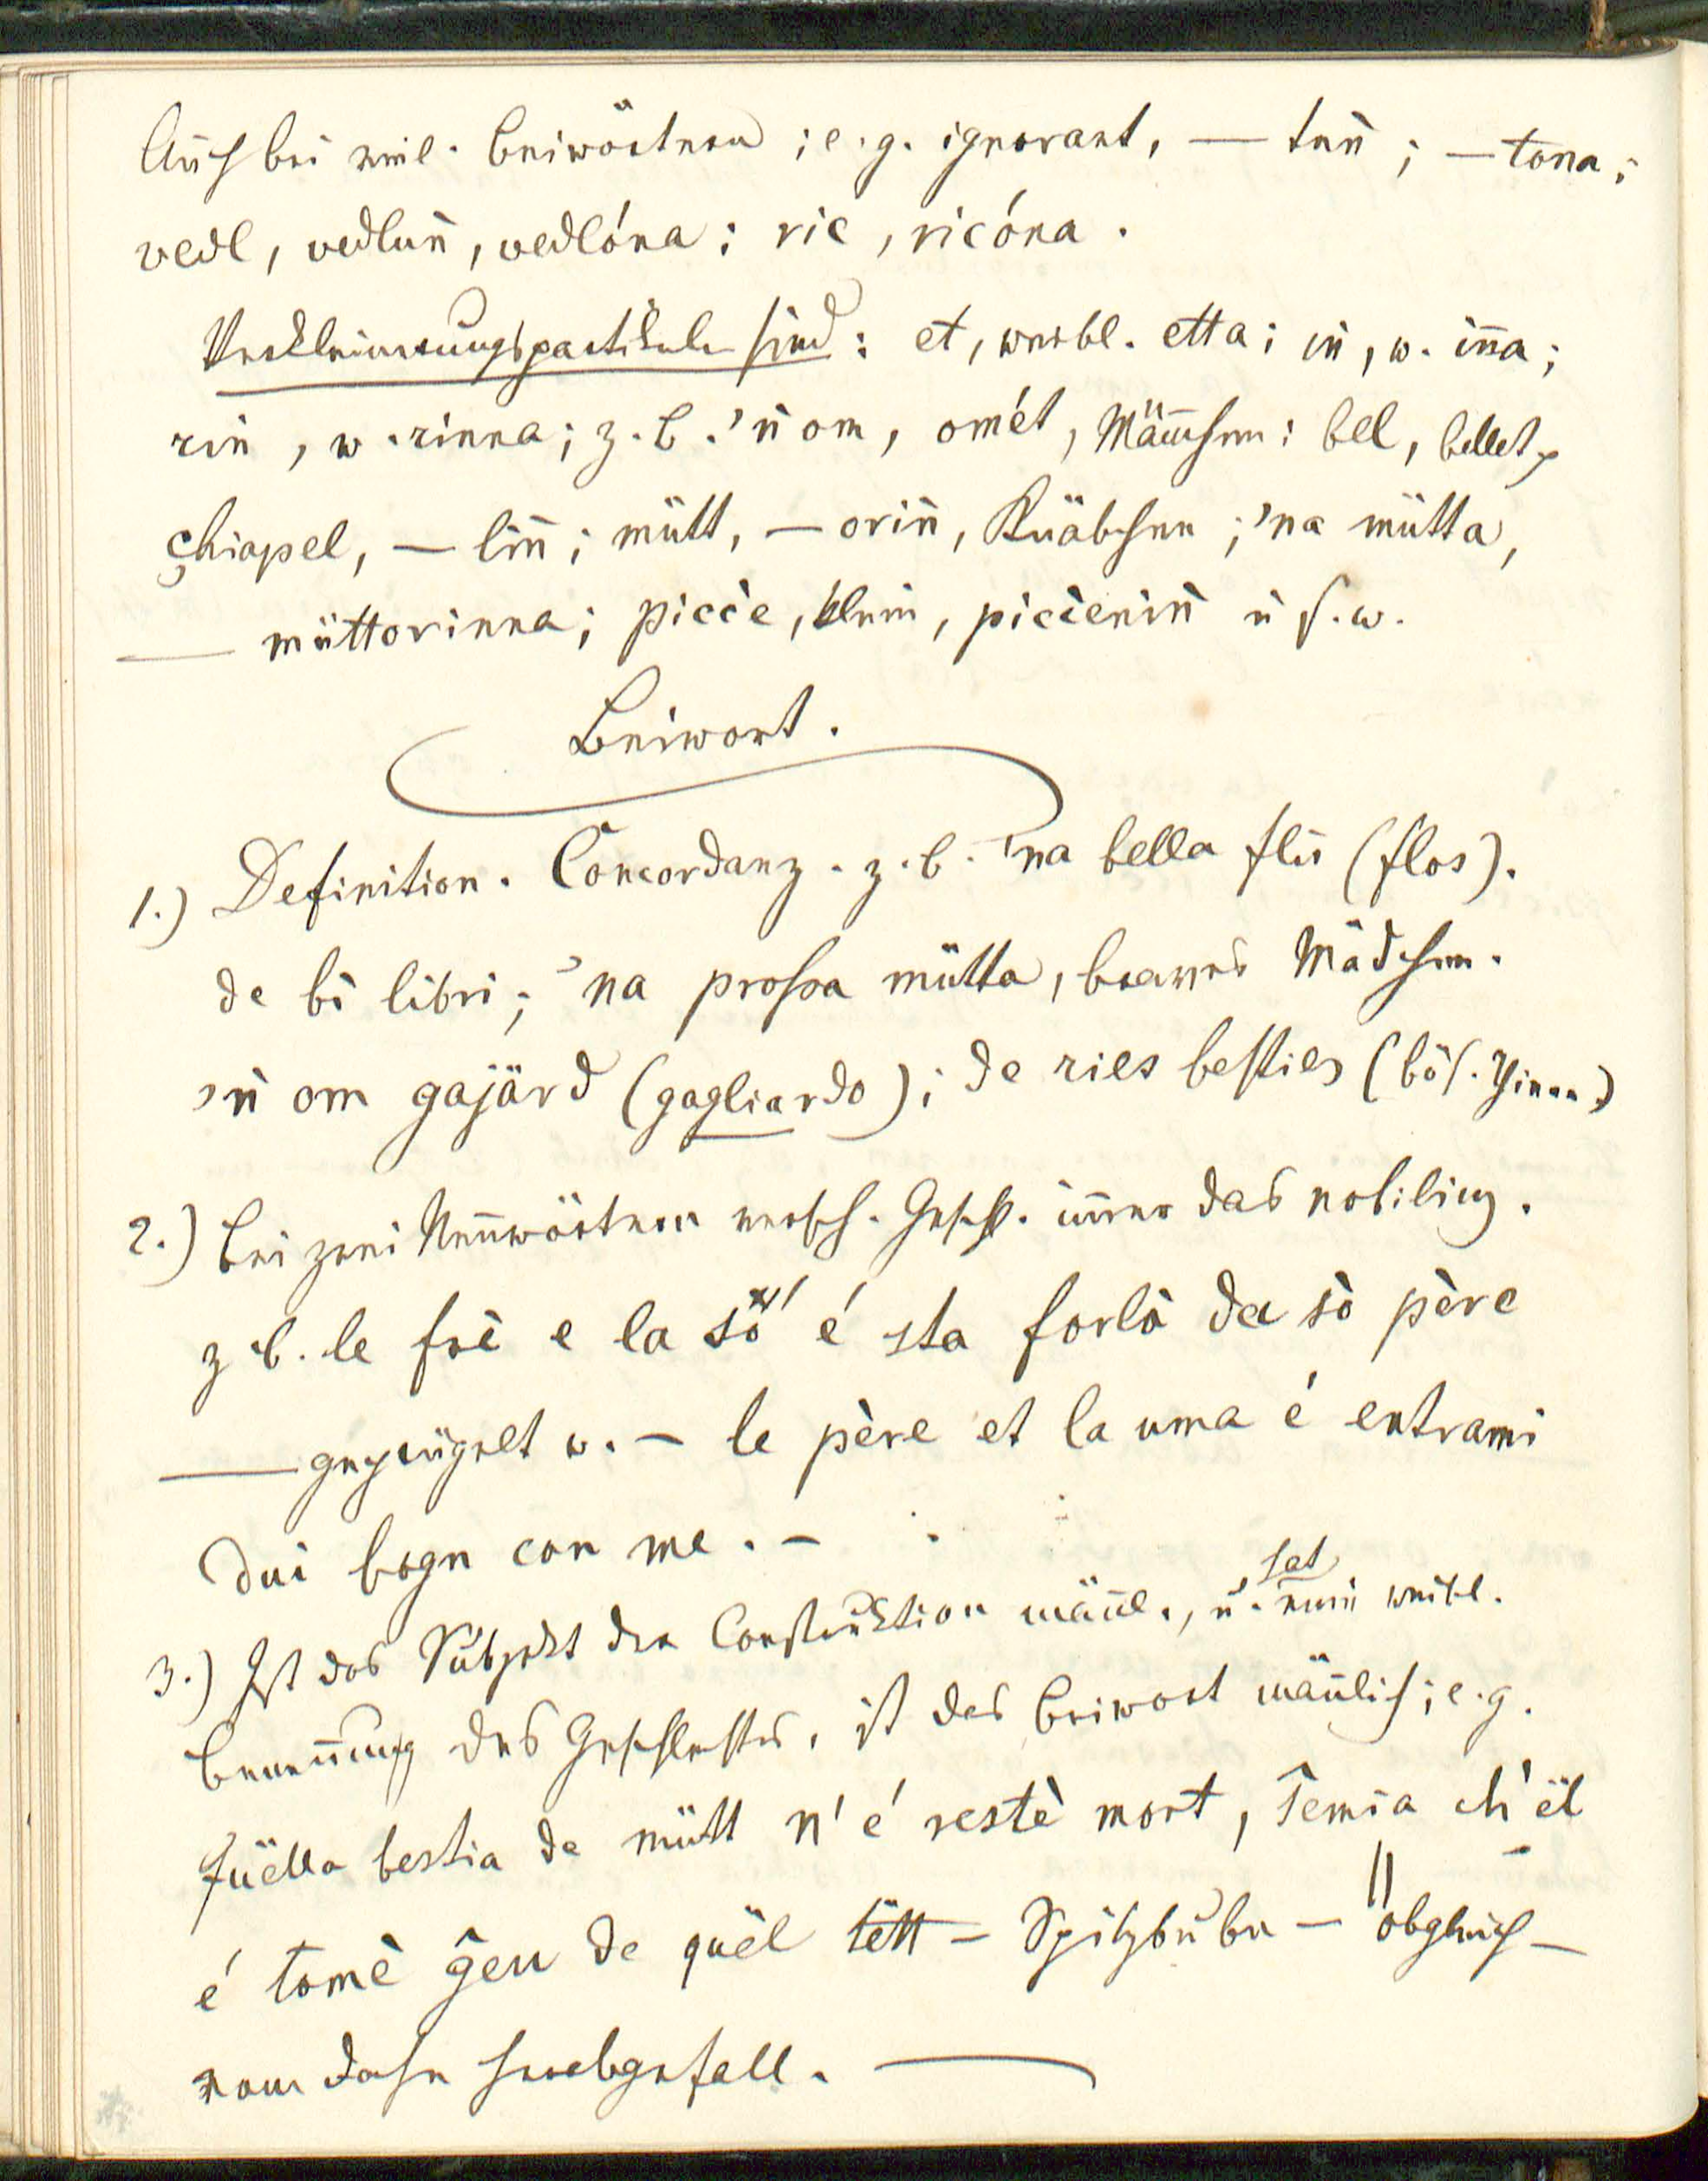 Auch bei viel. Beiwörtern; e.g. ignorant, — tun̄; — tona;
vedl, vedlun̄, vedlóna; ric, ricóna.
Verkleinerungspartikeln sind: et, weibl. etta; in̄, w. in̄a;
rin̄, w. rinna; z.B. 'n̄ om, omét, Män̄chen; bel, bellet,
çhiapel, — lin̄; mütt, — orin̄, Knäbchen; 'na mütta,
— müttorinna; picce, klein, piccenin̄ u s.w.
Beiwort.
1.) Definition. Concordanz. z.b. 'na bella flù (flos).
de bì libri; 'na prossa mütta, braves Mädchen.
'n̄ om gajärd (gagliardo); de ries besties (bös. Thiere)
2.) Bei zwei Nen̄wörtern versch. Geschl. im̄er das nobilius.
z b. le frè e la sö́ é sta forlà da sò père
— geprügelt w. — le père et la uma é entrami
dui bogn con me. —
3.) Ist das Subjekt der Construktion män̄l., u. hat eine weibl.
Benen̄ung des Geschlechtes, ist das Beiwort män̄lich; e.g.
Quëlla bestia de mütt n' é restè mort, Semia ch' ël
é tomè ĝeu de quël tëtt — Spitzbube — obgleich —
vom Dache herabgefall. —